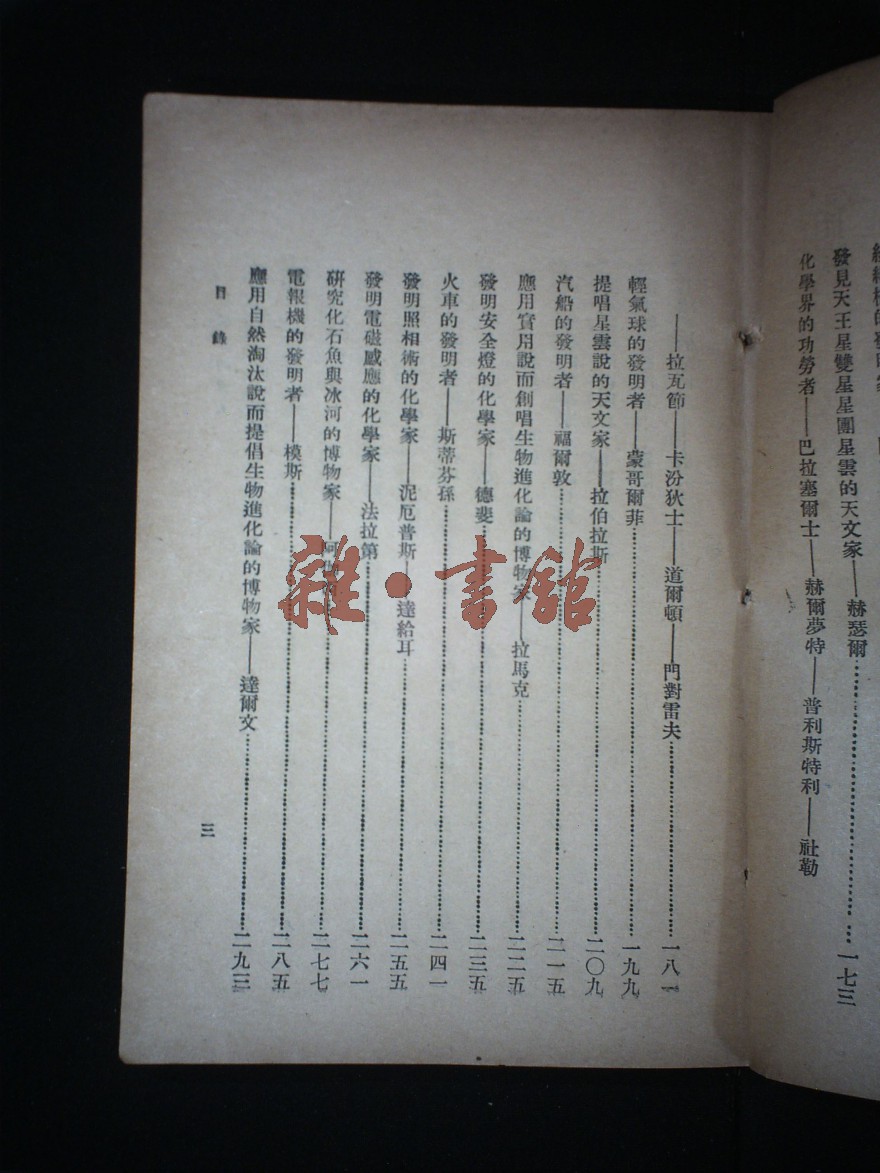 發見天王星雙星星團星雲的天文家——赫瑟爾…………一七三
化學界的功勞者——巴拉塞爾士——赫爾夢特——普利斯特利——社勒
——拉瓦節——卡汾狄士——道爾頓——門對雷夫…………一八一
輕氣球的發明者——蒙哥爾菲…………一九九
提唱星雲說的天文家——拉伯拉斯…………二〇九
汽船的發明者——福爾敦…………二一五
應用實用說而創唱生物進化論的博物家——拉馬克…………二二五
發明安全燈的化學家——德斐…………二三五
火車的發明者——斯蒂芬孫…………二四一
發明照相術的化學家——泥厄普斯——達給耳…………二五五
發明電磁感應的化學家——法拉第…………二六一
研究化石魚與冰河的博物家——…………二七七
電報機的發明者——模斯…………二八五
應用自然淘汰說而提倡生物進化論的博物家——達爾文…………二九三
目錄
三
雜·書館